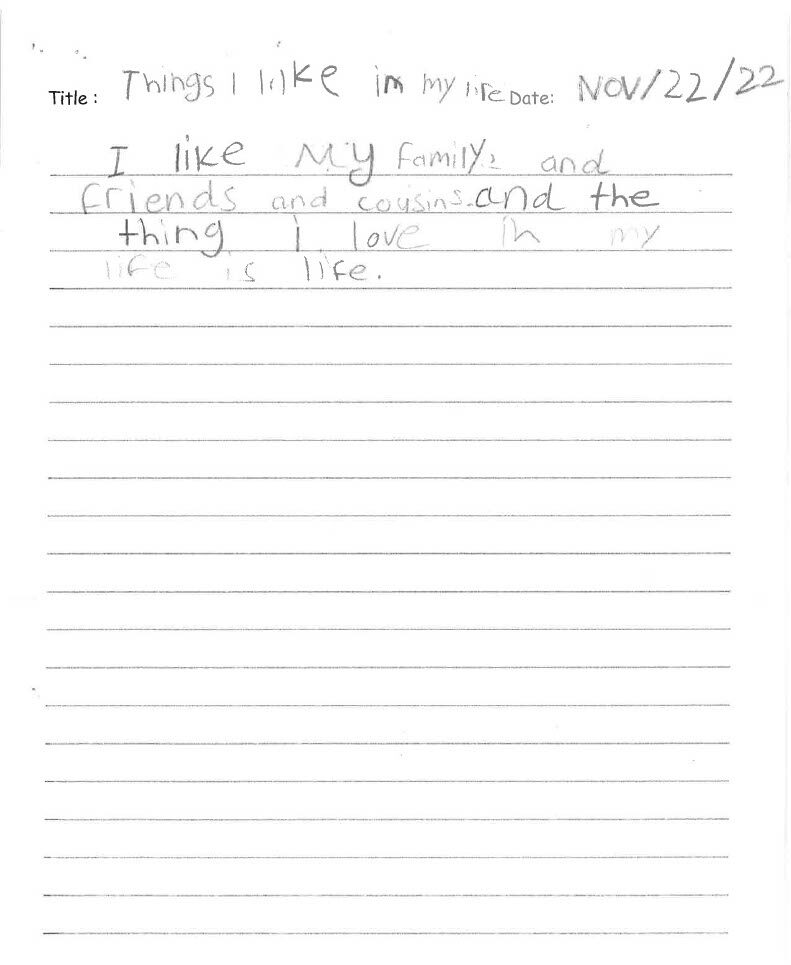 Title: Things I like in my life Date: NOV/22/22
I like My family, and
friends and cousins. and the
thing i love in my
life is life.